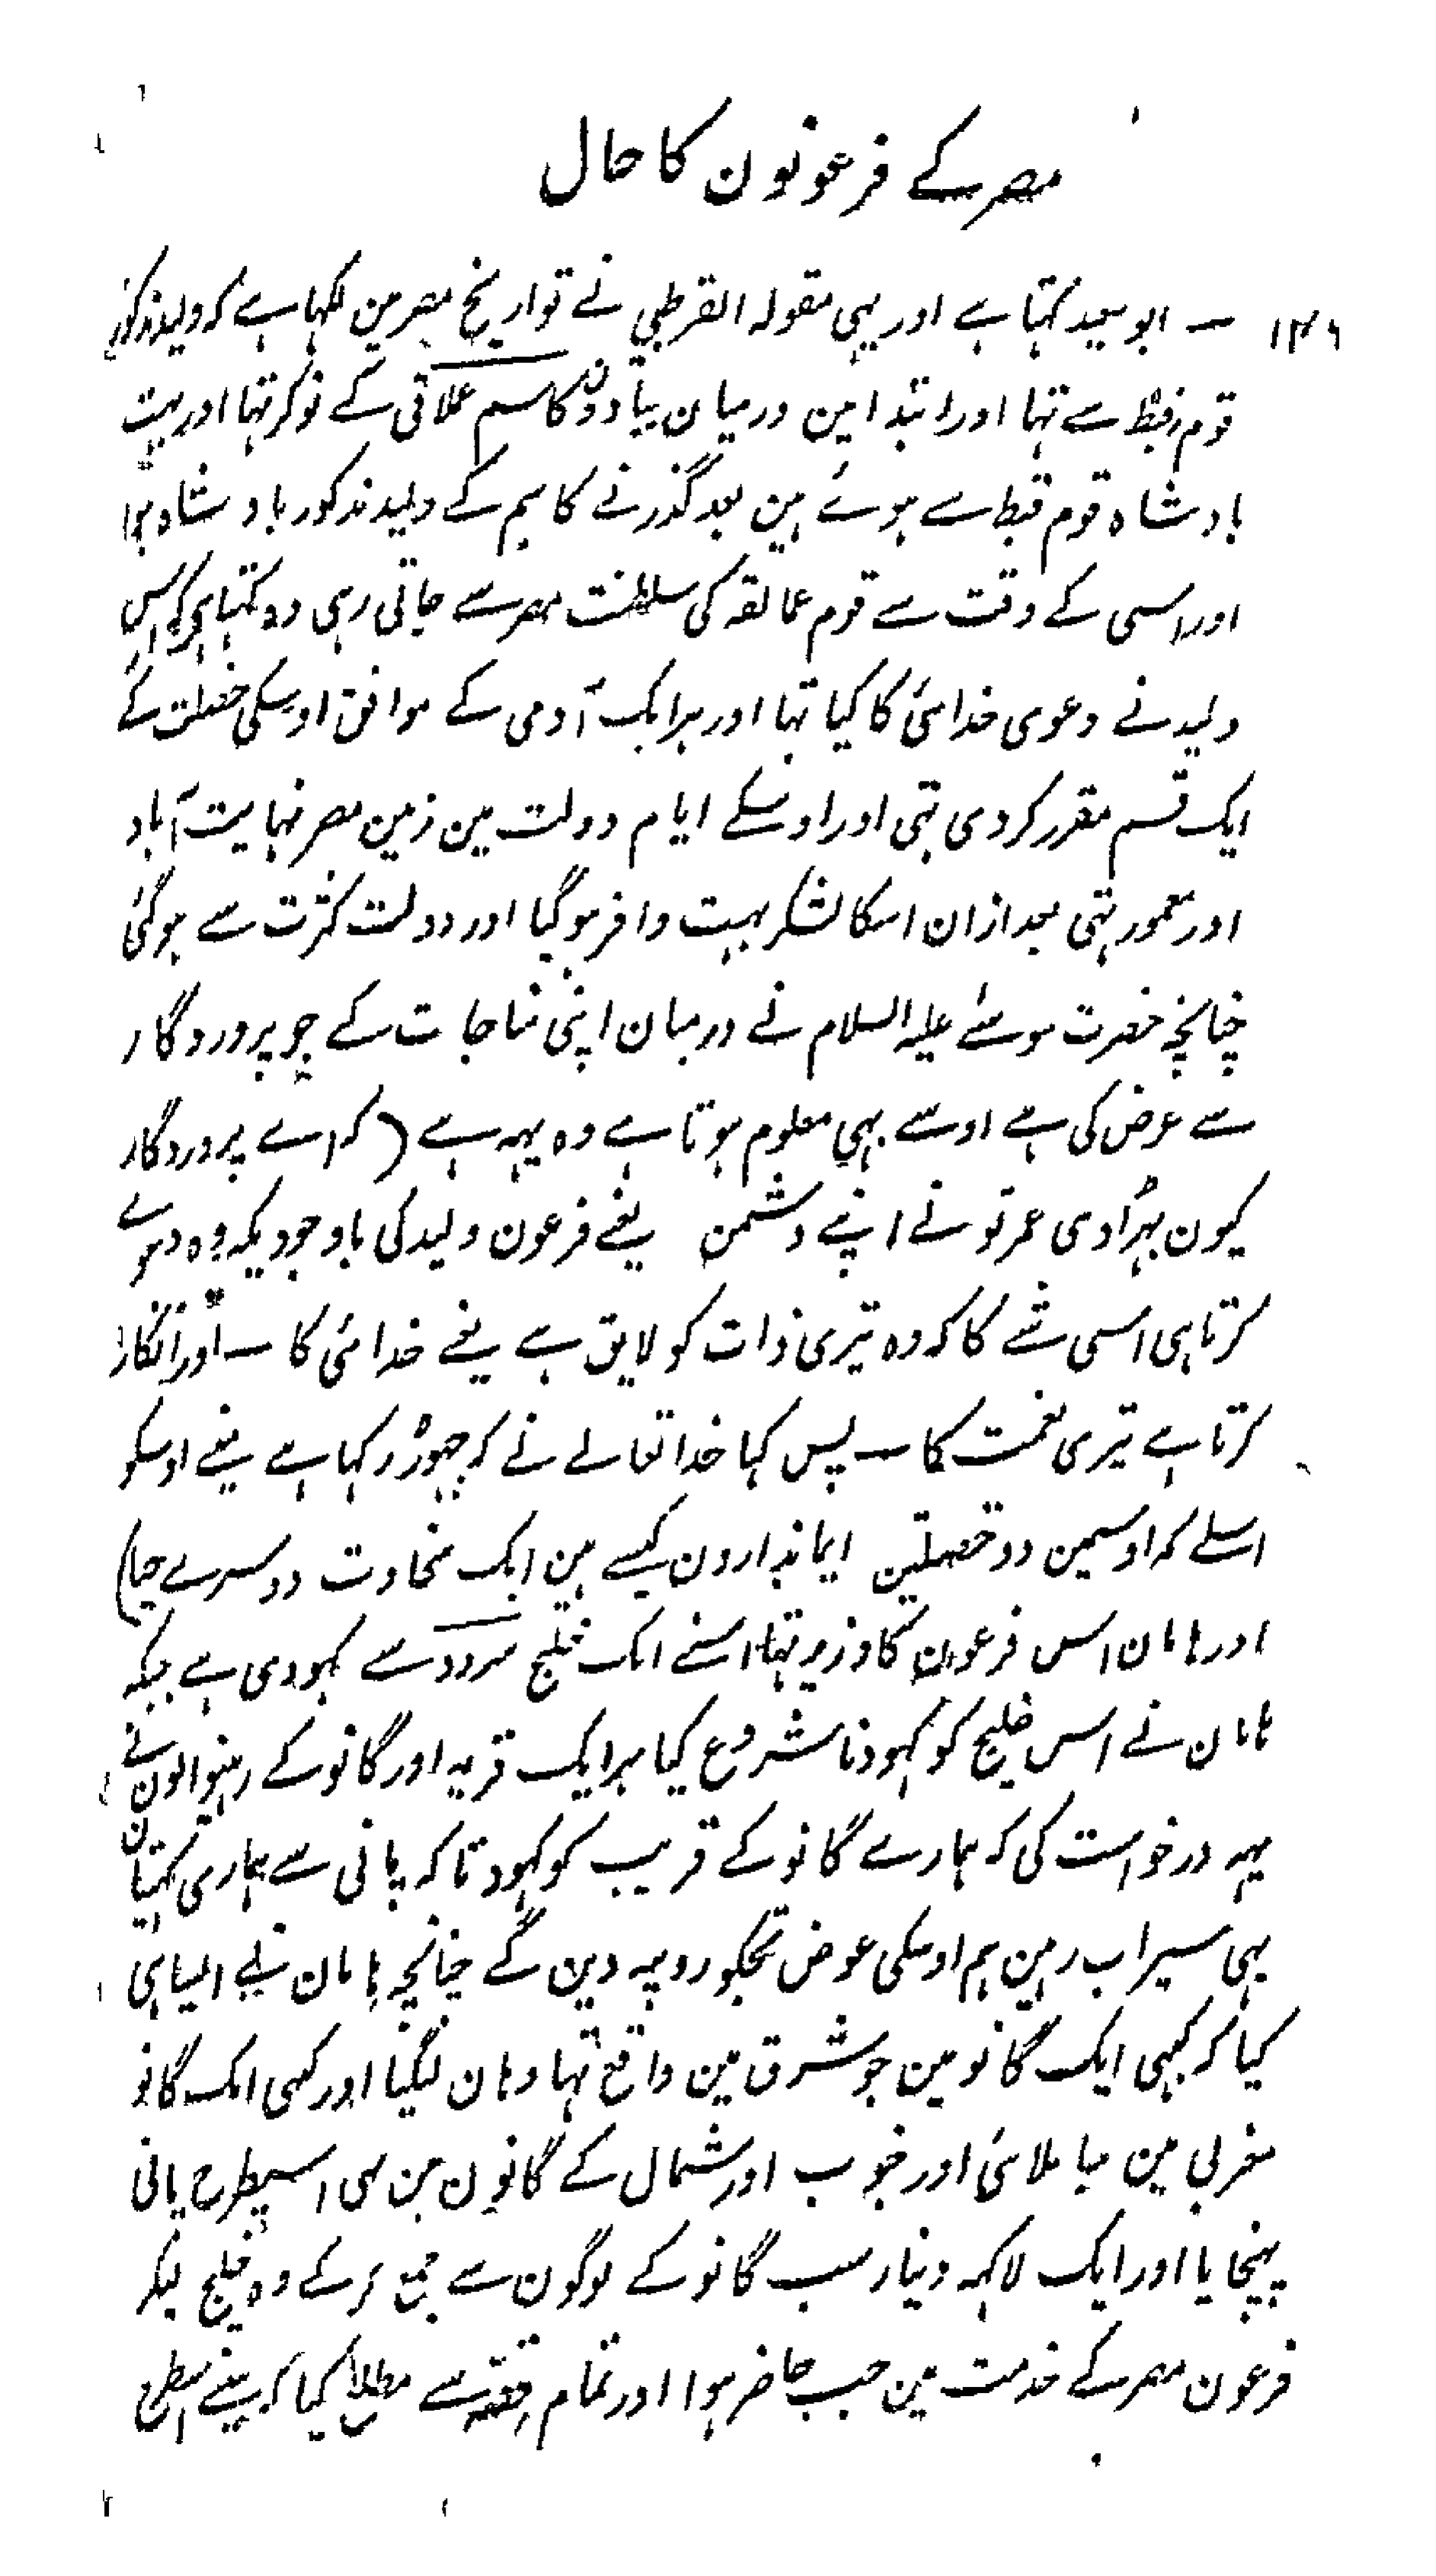 مصر کے فرعونون کا حال
۱۴۶ — ابو سعید کہتا ہے اور یہی مقولہ القرطبی نے تواریخ مصر مین لکہا ہے کہ ولید مذکور
قوم قبط سے تہا اور ابتدا مین درمیان پیادون کاسم عملاقی کے نوکر تہا اور بہت
بادشاہ قوم قبط سے ہوئے ہین بعد گذرنے کاسم کے ولید مذکور بادشاہ ہوا
اور اسی کے وقت سے قوم عمالقہ کی سلطنت مصر سے جاتی رہی وہ کہتا ہی کہ اس
ولید نے دعوی خدائی کا کیا تہا اور ہر ایک آدمی کے موافق اوسکی خصلت کے
ایک قسم مقرر کر دی تہی اور اوسکے ایام دولت مین زمین مصر نہایت آباد
اور معمور تہی بعد ازان اسکا لشکر بہت وافر ہو گیا اور دولت کثرت سے ہو گئی
چنانچہ حضرت موسیٰ علیہ السلام نے درمیان اپنی مناجات کے جو پروردگار
سے عرض کی ہے اوسے بہی معلوم ہوتا ہے وہ یہہ ہے (کہ اے پروردگار
کیون بڑہا دی عمر تو نے اپنے دشمن یعنے فرعون ولید کی باوجودیکہ وہ دعوے
کرتا ہی اسی شے کا کہ وہ تیری ذات کو لایق ہے یعنے خدائی کا — اور انکار
کرتا ہے تیری نعمت کا — پس کہا خدا تعالے نے کہ چہوڑ رکہا ہے مینے اوسکو
اسلے کہ اوسمین دو خصلتین ایماندارون کیسے ہین ایک سخاوت دوسرے حیا)
اور ہامان اس فرعون کا وزیر تہا اسنے ایک خلیج سردوسے کہودی ہے جبکہ
ہامان نے اس خلیج کو کہودنا شروع کیا ہر ایک قریہ اور گانو کے رہنیوالون نے
یہہ درخواست کی کہ ہمارے گانو کے قریب کو کہود تاکہ پانی سے ہماری کہیتیان
بہی سیراب رہین ہم اوسکی عوض تجکو روپیہ دین گے چنانچہ ہامان نے ایسا ہی
کیا کہ کبہی ایک گانو مین جو شرق مین واقع تہا وہان لیگیا اور کبہی ایک گانو
مغربی مین جا ملائی اور جنوب اور شمال کے گانون مین بہی اسیطرح پانی
پہنچایا اور ایک لاکہہ دینار سب گانو کے لوگون سے جمع کر کے وہ خلیج لیکر
فرعون مصر کے خدمت مین جب حاضر ہوا اور تمام قصہ سے مطلع کیا کہ مینے اسطرح